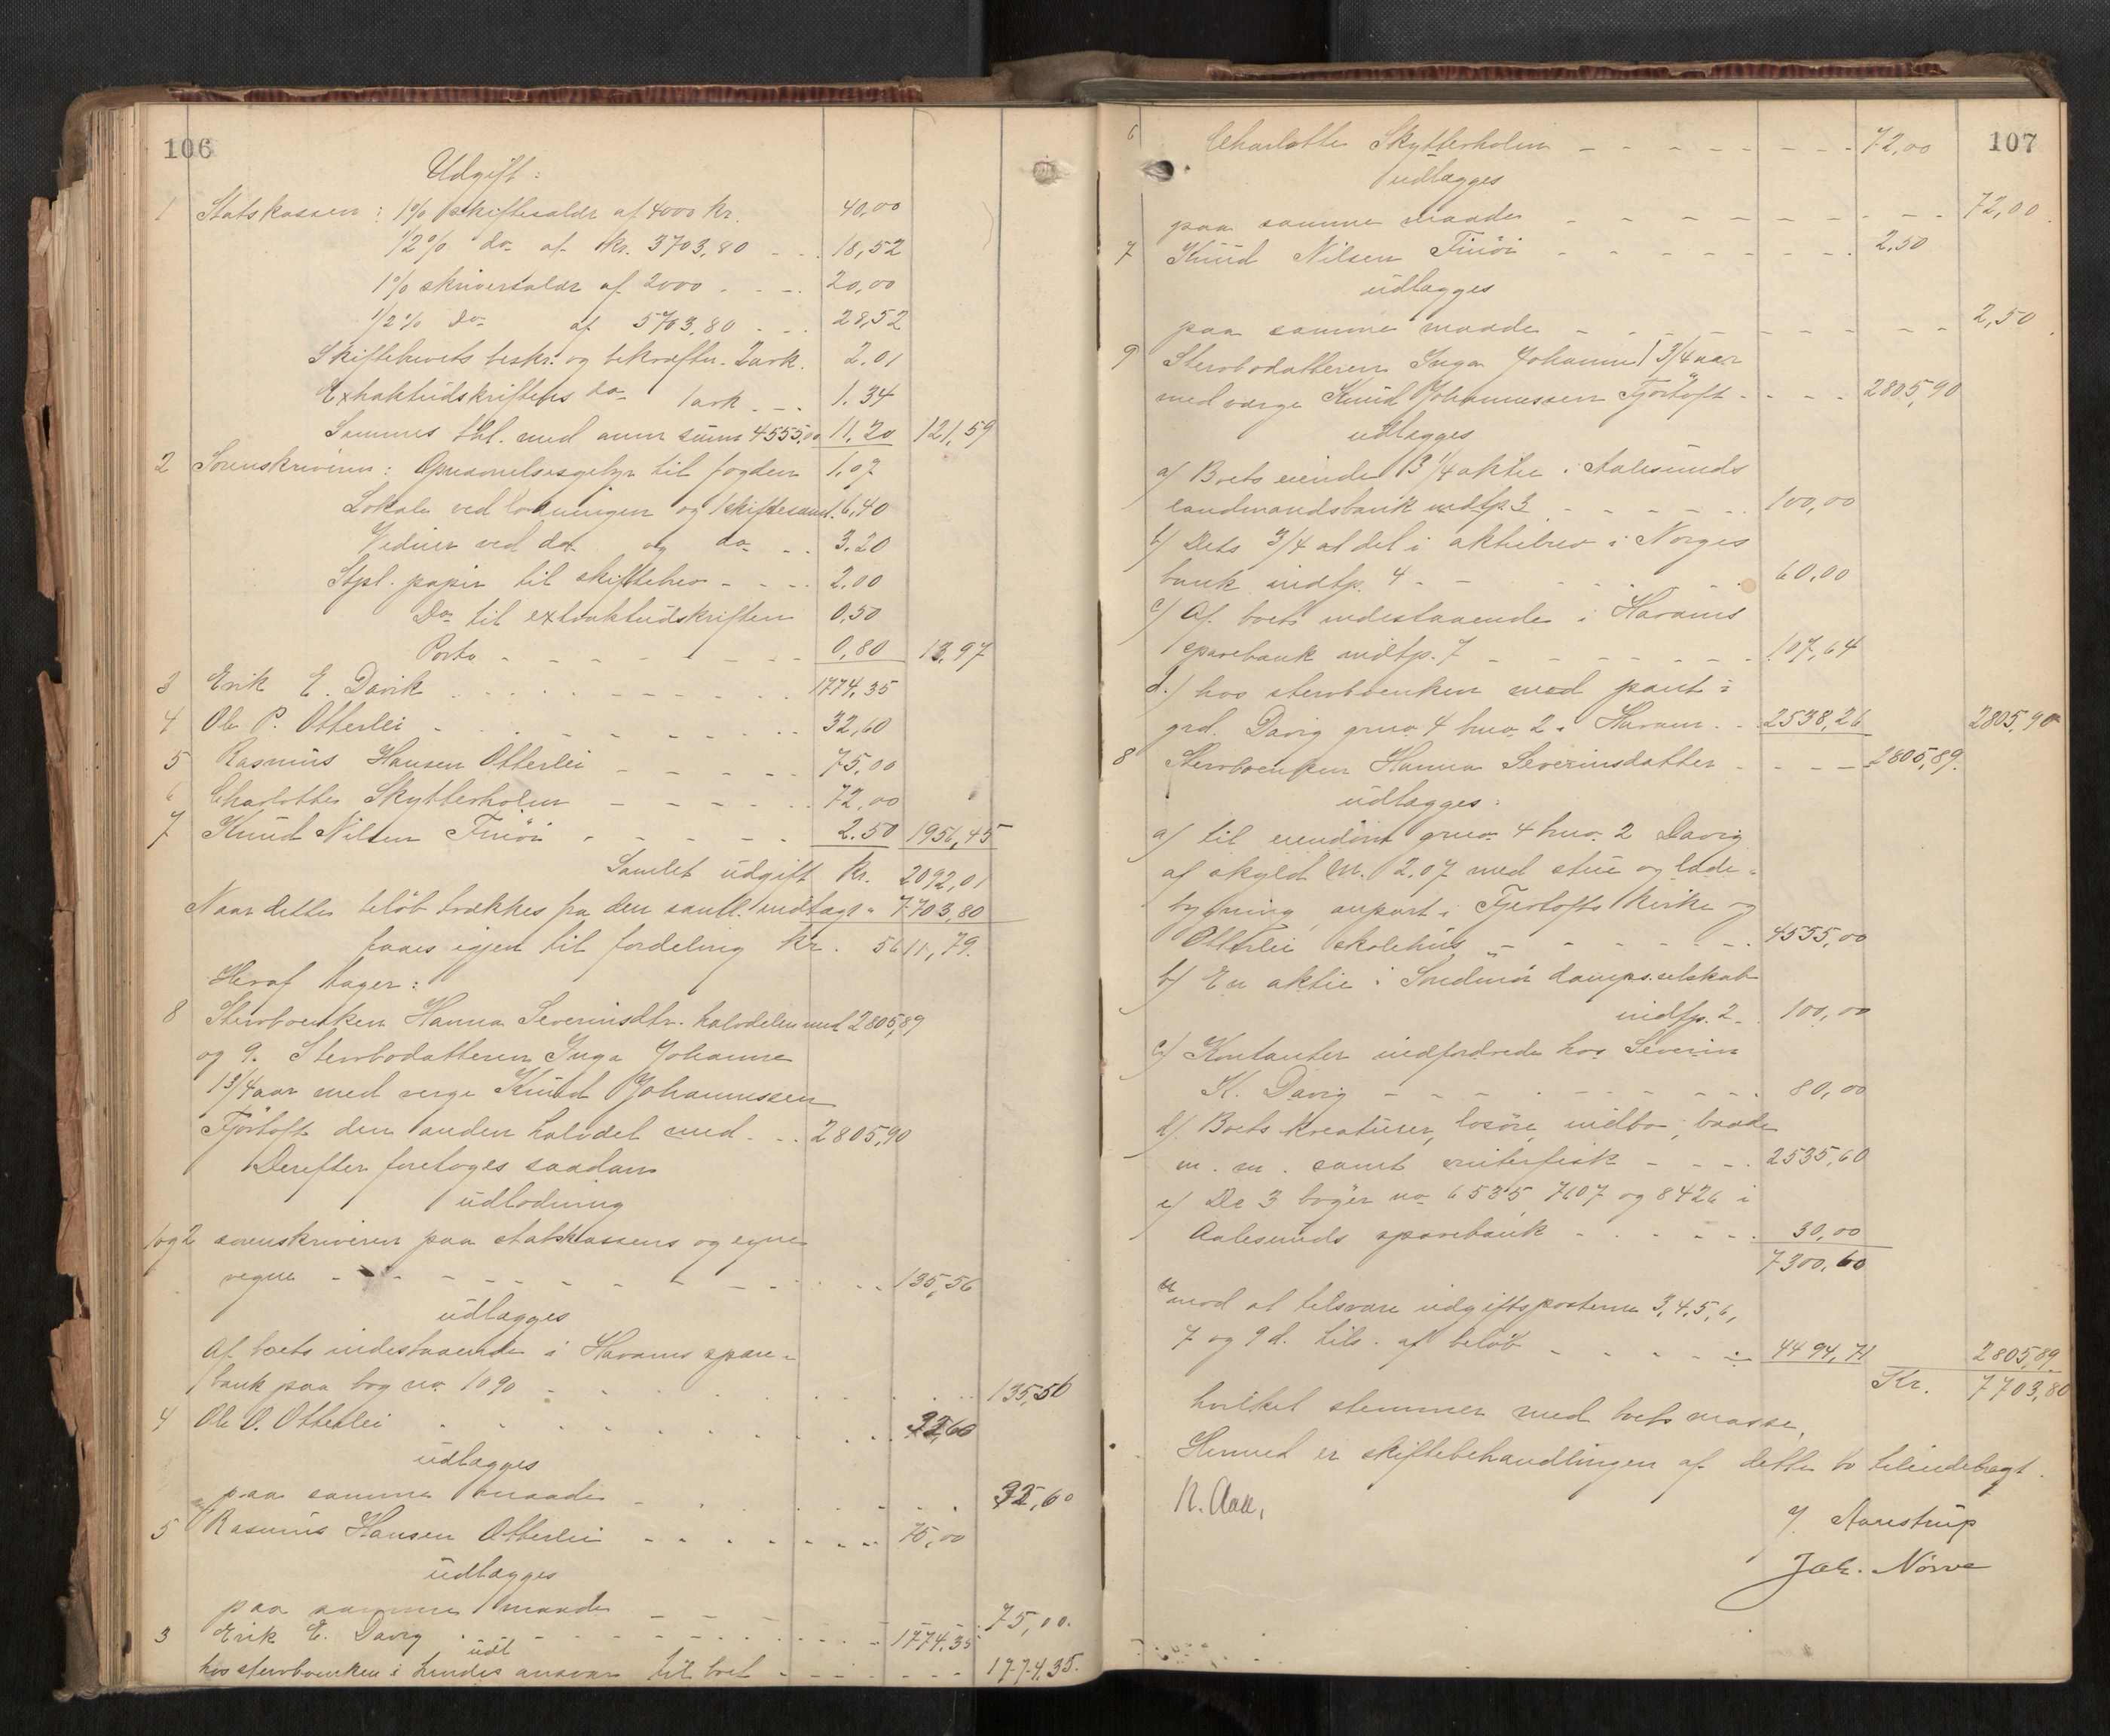 106
Udgift:
1 Statskassen: 1% skiftesalær af 4000 kr. 40,00
1/2% do af kr. 3703,80 - - 18,52
1% skriversalær af 2000 - - - 20,00
1/2% do af 5703,80 - - 28,52
Skiftebrevets beskr. og bekræftn. 2 ark. 2.01
Extraktudskriftens do 1 ark - - 1.34
Sammes thl. med anm sum 4555,00 11,20 121,59
2 Sorenskriveren: Opnævnelsesgebyr til fogden 1,07
Lokale ved lodningen og skiftesaml. 6,40
Vidner ved do og do - - 3.20
Stpl. papir til skiftebrev - - - 2.00
Do til extraktudskriften 0,50
Porto - - - - - - - - 0,80 13,97
3 Erik E. Davik - - - - - - - 1774,35
4 Ole P. Otterlei - - - - - - - 32,60
5 Rasmus Hansen Otterlei - - - - - 75,00
6 Charlotte Skytterholm - - - - - 72,00
7 Knud Nilsen Finöi - - - - - 2.50 1956,45
Samlet udgift Kr. 2092,01
Naar dette beløb trækkes fra den saml. indtægt " 7703,80
faaes igjen til fordeling kr. 5611,79.
Heraf tager:
8 Stervboenken Hanna Severinsdtr. halvdelen med 2805,89
og 9. Stervbodatteren Inga Johanne
1 3/4 aar med verge Knud Johannessen
Fjörtoft den anden halvdel med - - 2805,90
Derefter foretoges saadan
udlodning
1 og 2 sorenskriveren paa statskassens og egne
vegne - - - - - - - - - - - 135,56
udlægges
Af boets indestaaende i Harams spare-
bank paa bog no. 1090 - - - - - - - 135,56
4 Ole O. Otterlei - - - - - - - - - 32,60
udlægges
paa samme maade - - - - - - - 32,60
5 Rasmus Hansen Otterlei - - - - - - - 75,00
udlægges
paa samme maade - - - 75,00.
3 Erik E. Davig - - - - - - - - - 1774,35
udl
hos stervboenken i hendes ansvar til boet - - - - - - 1774,35.
107
6 Charlotte Skytterholm - - - - - - - - 72,00
udlægges
paa samme maade - - - - - - - - - - 72,00.
7 Knud Nilsen Finöi - - - - - - - - 2,50
udlægges
paa samme maade - - - - - - - - - - 2,50.
9 Stervbodatteren Inga Johanne 1 3/4 aar
med værge Knud Johannessen Fjörtoft - - - - 2805,90
udlægges
a) Boets eiende 3 1/4 aktie i Aalesunds
landmandsbank indtp. 3 - - - - - - 100,00
b) Dets 3/4 al del i aktiebrev i Norges
bank indtp. 4 - - - - - 60,00
c) Af boets indestaaende i Harams
sparebank indtp. 7 - - - - - - - 107,64
d.) hos stervboenken med pant i
grd. Davig gno. 4 bno. 2 i Haram - - 2538,26 2805,90
8 Stervboenken Hanna Severinsdatter - - - - 2805,89.
udlægges:
a) til eiendom gno. 4 bno. 2 Davig
af skyld M. 2.07 med stue og lade-
bygning, anpart i Fjørtofts kirke og
Otterlei skolehus - - - - - - - 4555,00
b) En aktie i Søndmør damps.selskab
indtp. 2 - 100,00
c) Kontanter indfordrede hos Severin
K. Davig - - - - - - - - - 80,00
d) Boets kreaturer, løsøre, indbo, baade
m. m. samt vinterfisk - - - - 2535,60
e) De 3 bøger no 6535 7607 og 8426 i
Aalesunds sparebank - - - - - - 30,00
7300,60
mod at tilsvare udgiftsposterne 3, 4, 5, 6,
7 og 9 d. tils. af beløb - - - - ÷ 4494,71 2805,89
Kr. 7703,80
hvilket stemmer med boets masse.
Hermed er skiftebehandlingen af dette bo tilendebragt.
J. Aarestrup
Joh. Nørve